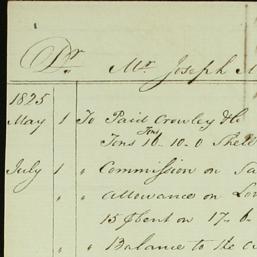 Dr. Mr. Joseph
1825
May 1 To Paid Crowley & Co
Tons
Tons 16-10-0 Shell
July 1 " Commission on
" " allowance on
15 ⅌ Cent on 17-6-
" " Balance to the